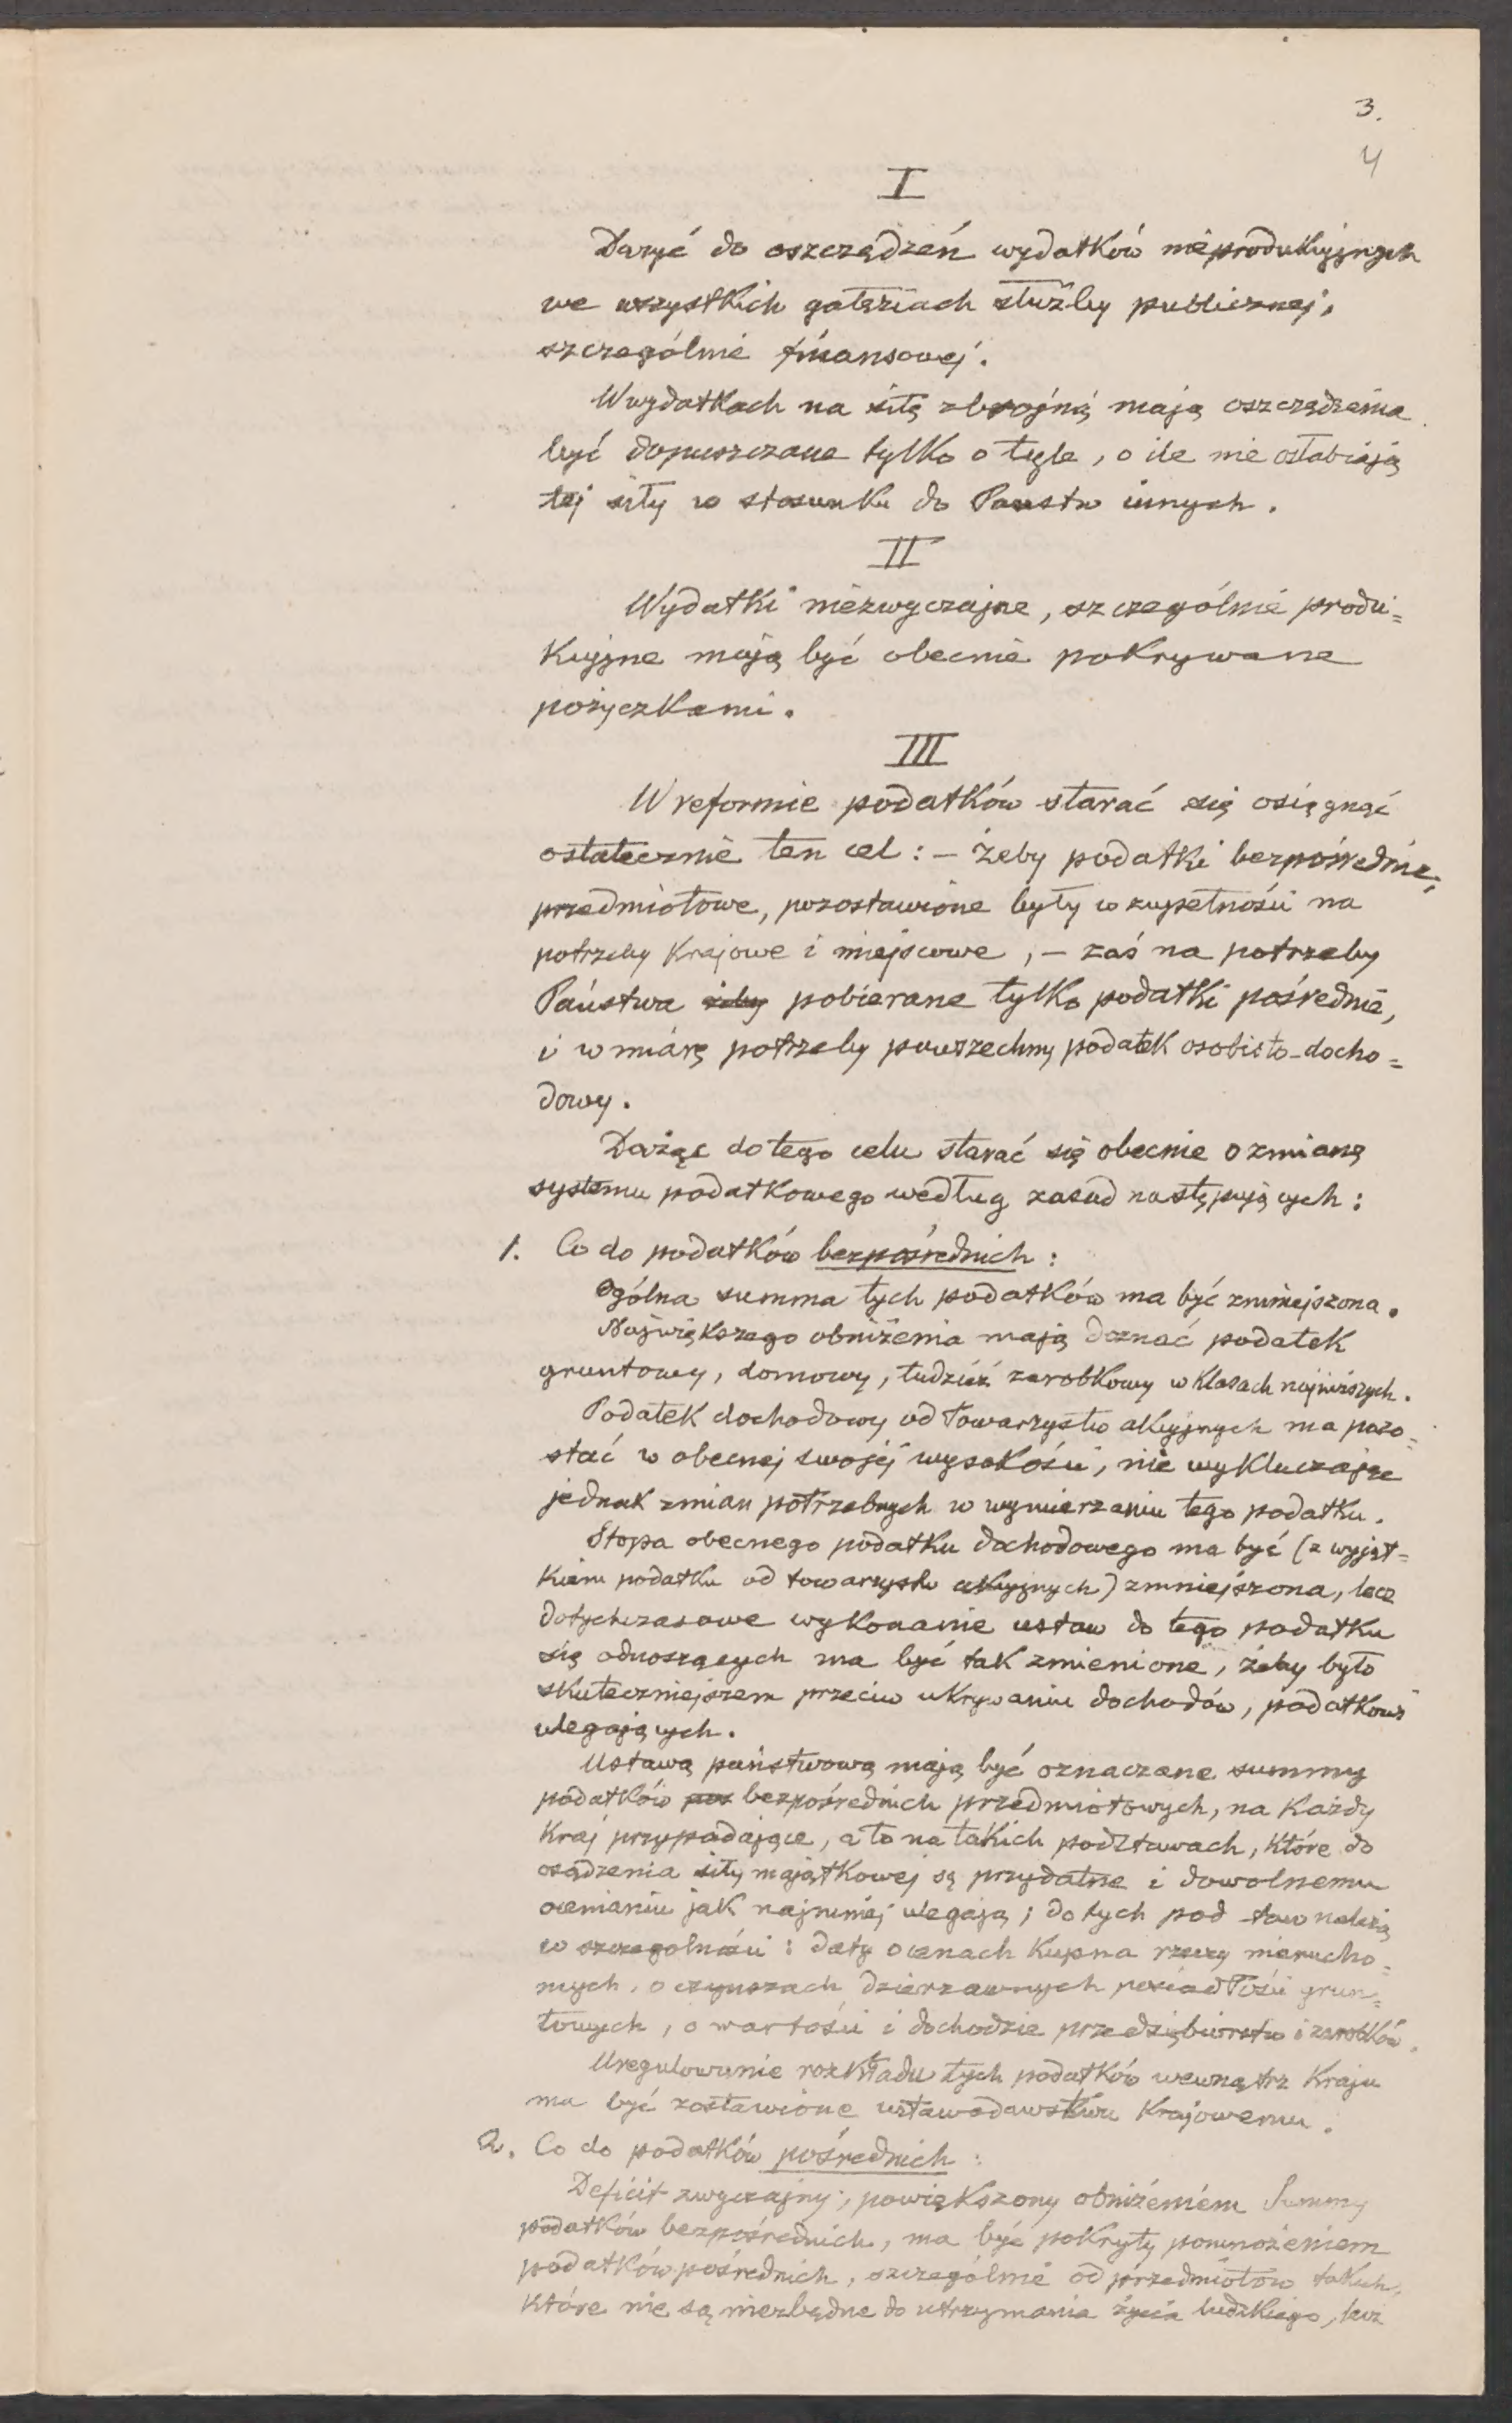 3.
4
I
Dążyć do oszczędzeń wydatków nieprodukcyjnych
we wszystkich gałęziach służby publicznej,
szczególnie finansowej.
W wydatkach na siłę zbrojną mają oszczędzenia
być dopuszczane tylko o tyle, o ile nie osłabiają
tej siły w stosunku do Państw innych.
II
Wydatki niezwyczajne, szczególnie produ=
kcyjne mają być obecnie pokrywane
pożyczkami.
III
W reformie podatków starać się osiągnąć
ostatecznie ten cel: – żeby podatki bezpośrednie,
przedmiotowe, pozostawione były w zupełności na
potrzeby krajowe i miejscowe, – zaś na potrzeby
Państwa żeby pobierane tylko podatki pośrednie,
i w miarę potrzeby powszechny podatek osobisto-docho=
dowy.
Dążąc do tego celu starać się obecnie o zmianę
systemu podatkowego według zasad następujących:
1. Co do podatków bezpośrednich:
Ogólna summa tych podatków ma być zmniejszona.
Największego obniżenia mają doznać podatek
gruntowy, domowy, tudzież zarobkowy w klasach najniższych.
Podatek dochodowy od towarzystw akcyjnych ma pozo=
stać w obecnej swojej wysokości, nie wykluczając
jednak zmian potrzebnych w wymierzaniu tego podatku.
Stopa obecnego podatku dochodowego ma być (z wyjąt=
kiem podatku od towarzystw akcyjnych) zmniejszona, lecz
dotychczasowe wykonanie ustaw do tego podatku
się odnoszących ma być tak zmienione, żeby było
skuteczniejszem przeciw ukrywaniu dochodów, podatkowi
ulegających.
Ustawą państwową mają być oznaczane summy
podatków pos bezpośrednich przedmiotowych, na każdy
kraj przypadające, a to na takich podstawach, które do
osądzenia siły majątkowej są przydatne i dowolnemu
ocenianiu jak najmniej ulegają; do tych pod-staw należą
w szczególności: daty o cenach kupna rzeczy nierucho=
mych, o czynszach dzierżawnych posiadłości grun=
towych, o wartości i dochodzie przedsiębiorstw i zarobków.
Uregulowanie rozkładu tych podatków wewnątrz kraju
ma być zostawione ustawodawstwu krajowemu.
2. Co do podatków pośrednich:
Deficit zwyczajny, powiększony obniżeniem Summy
podatków bezpośrednich, ma być pokryty pomnożeniem
podatków pośrednich, szczególnie od przedmiotów takich,
które nie są niezbędne do utrzymania życia ludzkiego, lecz